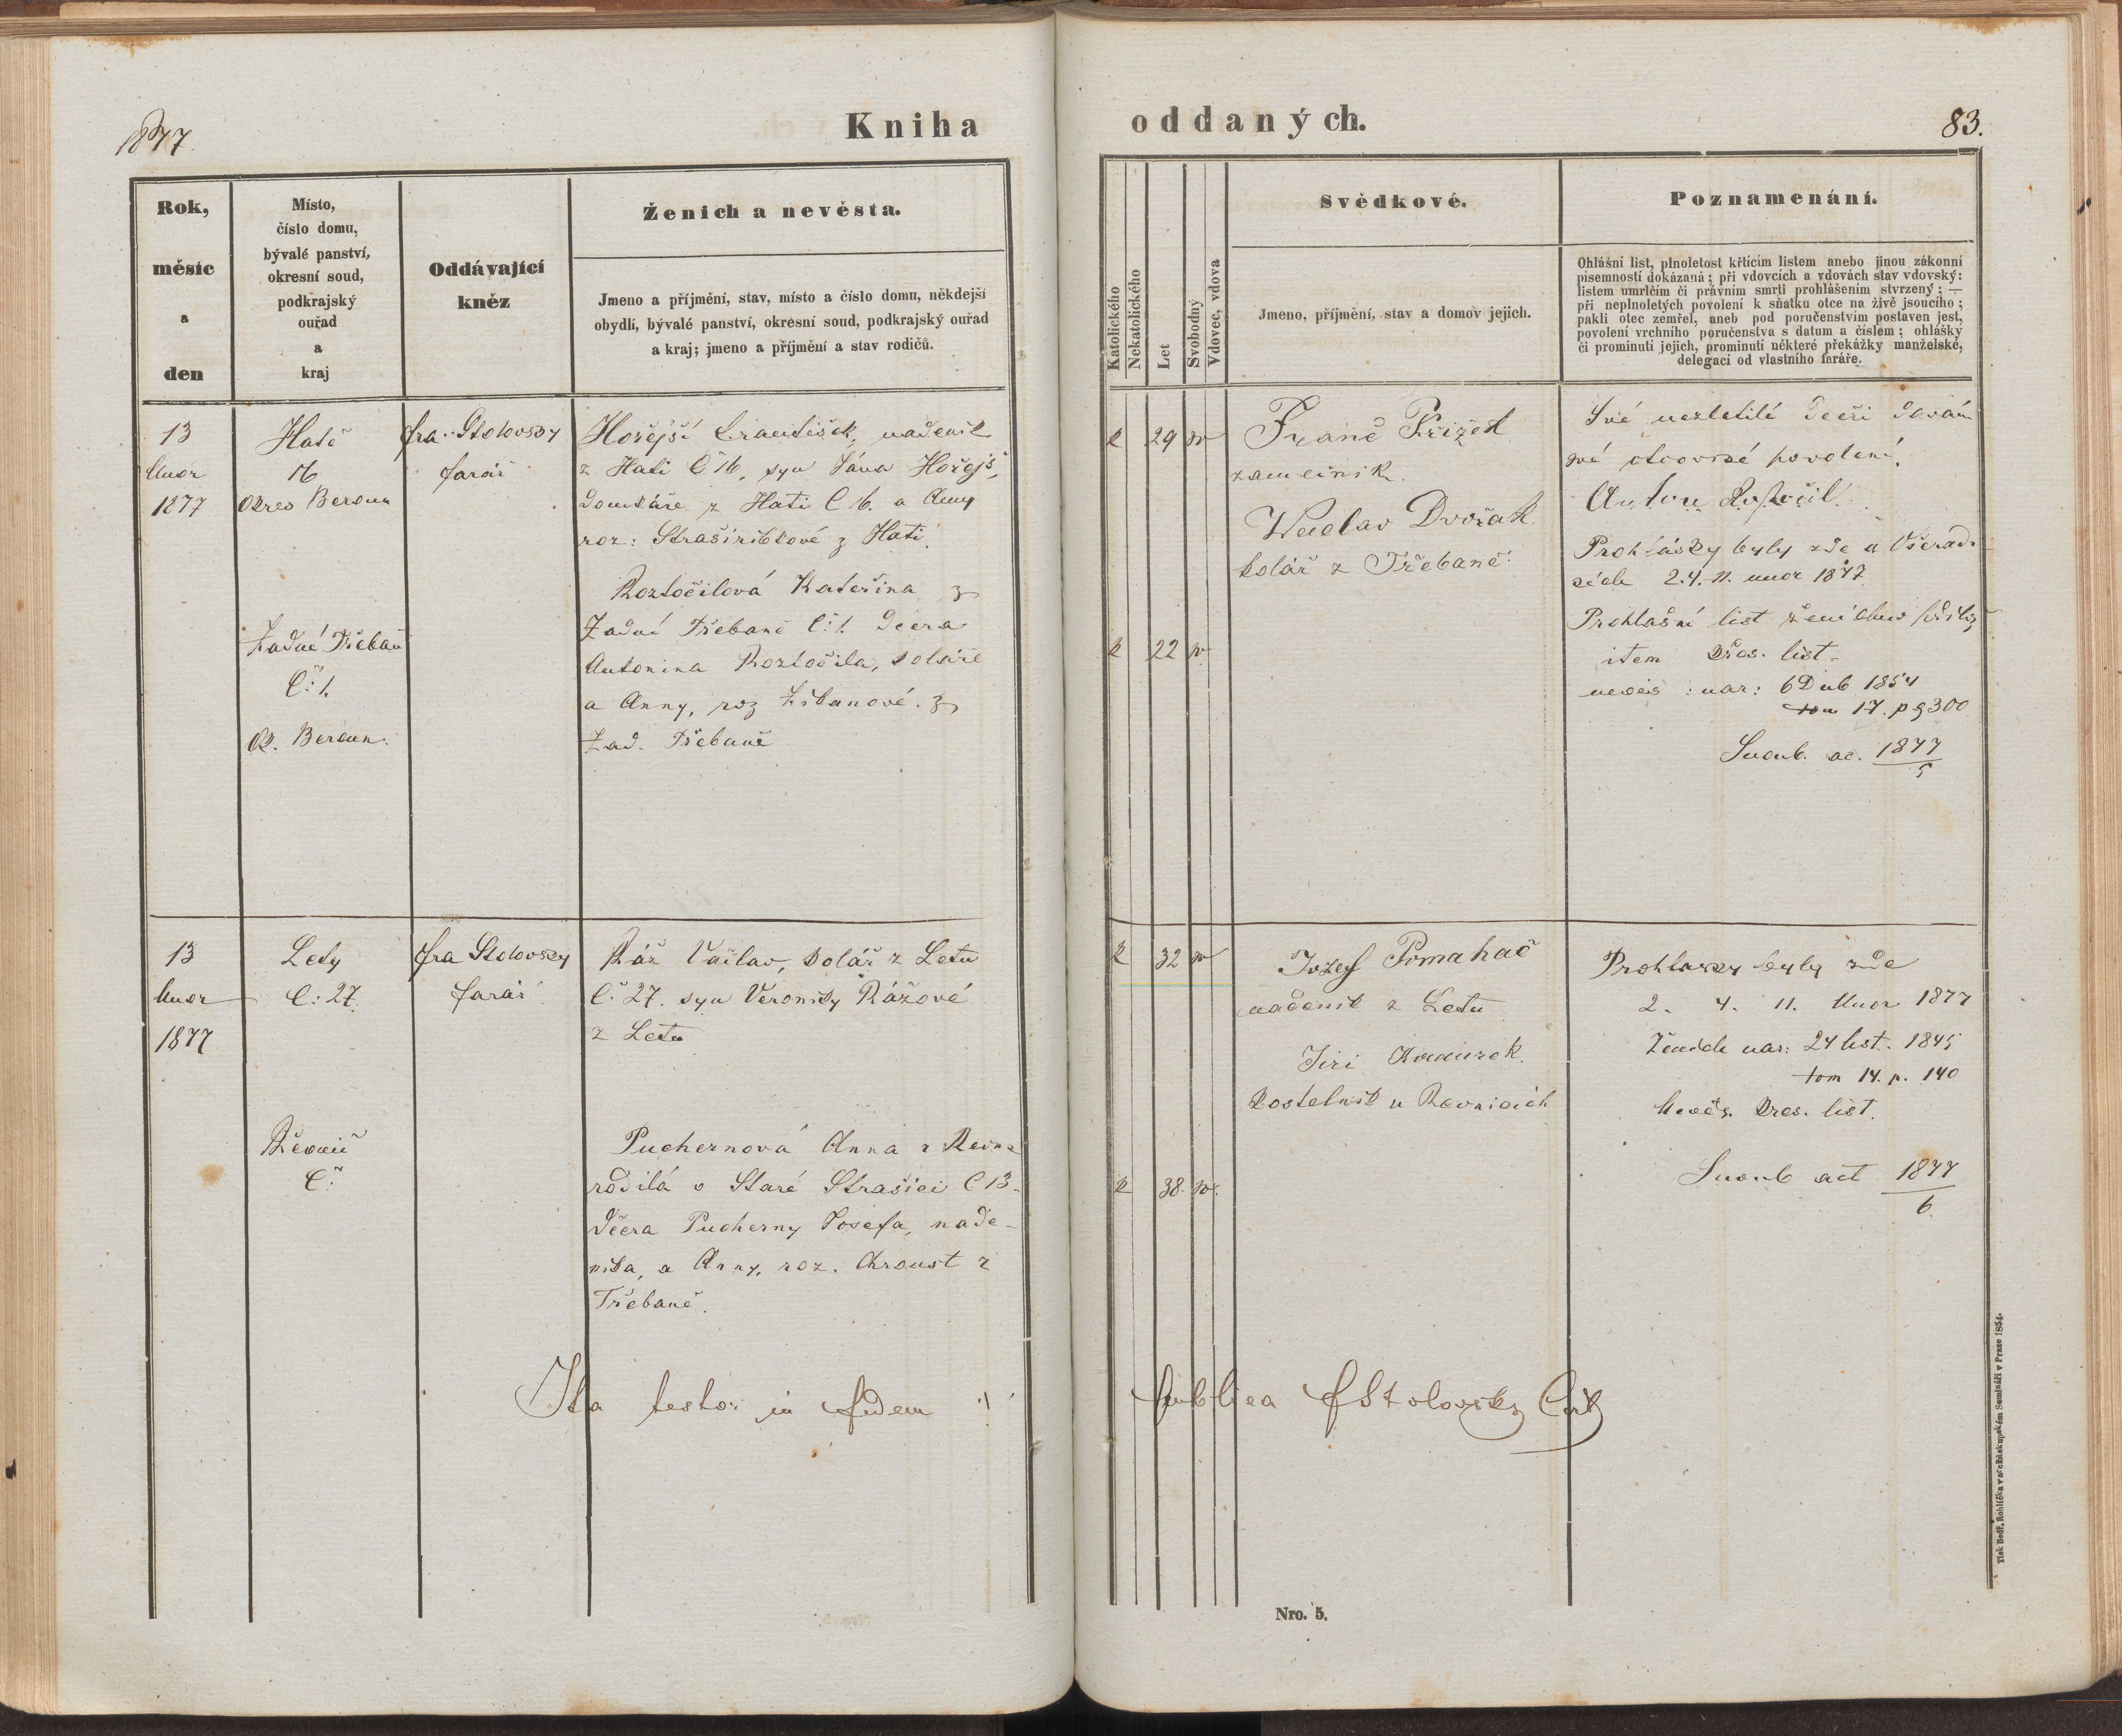 1877
Kniha
oddaných.
83.
Rok,
měsíc
a
den
Místo,
číslo domu,
bývalé panství,
okresní soud,
podkrajský
ouřad
a
kraj
Oddávající
kněz
Ženich a nevěsta.
Jmeno a příjmění, stav, místo a číslo domu, někdejší
obydlí, bývalé panství, okresní soud, podkrajský ouřad
a kraj; jmeno a příjmění a stav rodičů.
Katolického
Nekatolického
Let
Svobodný
Vdovec, vdova
Svědkové.
Jmeno, příjmění, stav a domov jejich.
Poznamenání.
Ohlášní list, plnoletost křtícím listem anebo jinou zákonní
písemností dokázaná; při vdovcích a vdovách stav vdovský:
listem umrlčím či právním smrti prohlášením stvrzený; —
při neplnoletých povolení k sňatku otce na živě jsoucího;
pakli otec zemřel, aneb pod poručenstvím postaven jest,
povolení vrchního poručenstva s datum a číslem; ohlášky
či prominutí jejich, prominutí některé překážky manželské,
delegací od vlastního faráře.
13
Unor
1877
Hatě
16
Okres Beroun
fra: Stolovsky
farář
Hořejší František, nadeník
z Hati Č 16, syn Jána Hořejš,
domkáře z Hati Č 16. a Anny
roz: z Hati
Roztočilová Kateřina z
Zadní Třebaně Č: 1. dcera
Antonina Roztočila, kolaře
a Anny, roz z
Zad. Třebaně
Zadní Třebaň
Č: 1.
Ok. Beroun.
k 29 sv
k 22 sv
Franc Křížek
zamečník.
Waclav Dvořak
kolář z Třebaně
Své nezletilé dceři davám
své otcovské povolení.
Anton
Prohlašky byly zde a Všerad.
2. 4. 11. unor 1877
Prohlašní list
item křes. list
: nar: 6 Dub 1854
tom 17. pg 300
Snoub. ac. 1877
5
13
Unor
1877
Lety
Č: 27.
fra Stolovsky
farář
Ráž Vaclav, kolář z Letu
Č: 27. syn Veroniky Rážové
z Letu
Řevnič
Č:
Puchernová Anna z Revn
rodilá v Staré Strašici Č 13.
dcera Pucherny Josefa, nade-
nika, a Anny, roz. Chroust z
Třebaně.
k 32 sv
k 38. sv.
Jozef Pomahač
nadeník z Letu
Jiri
kostelník u Revnicích
Prohlasky byly zde
2. 4. 11. Unor 1877
Ženich nar: 24 list. 1845
tom 14. p. 140
křes. list.
Snoub act 1877
6.
Ita testor in fidem
publica FStolovsky
Nro. 5.
Tisk Bedř. Rohlíčka v arcibiskupském Semináři v Praze 1854.